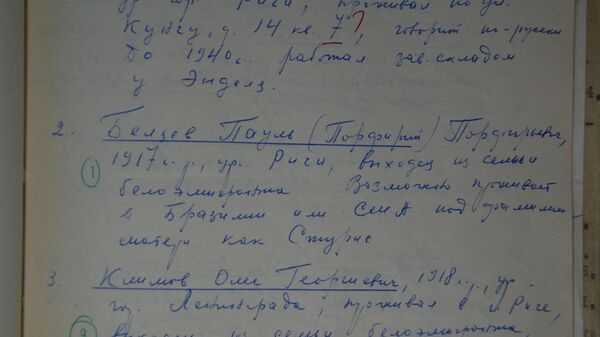 ур. гор. Риги, проживал по ул.
Кунгу, д. 14 кв. 7?, говорит по-русски
До 1940 г. работал зав. складом
у Энделя.
2. Белцев Пауль (Порфирий) Порфирьевич,
1917 г.р., ур. Риги, выходец из семьи
1
белоэмигранта Возможно проживает
в Бразилии или США под фамилией
матери как Стурис
3. Климов Олег Георгиевич, 1918 г.р., ур.
гор. Ленинграда, проживал в г. Риге,
2
выходец из семьи белоэмигранта,